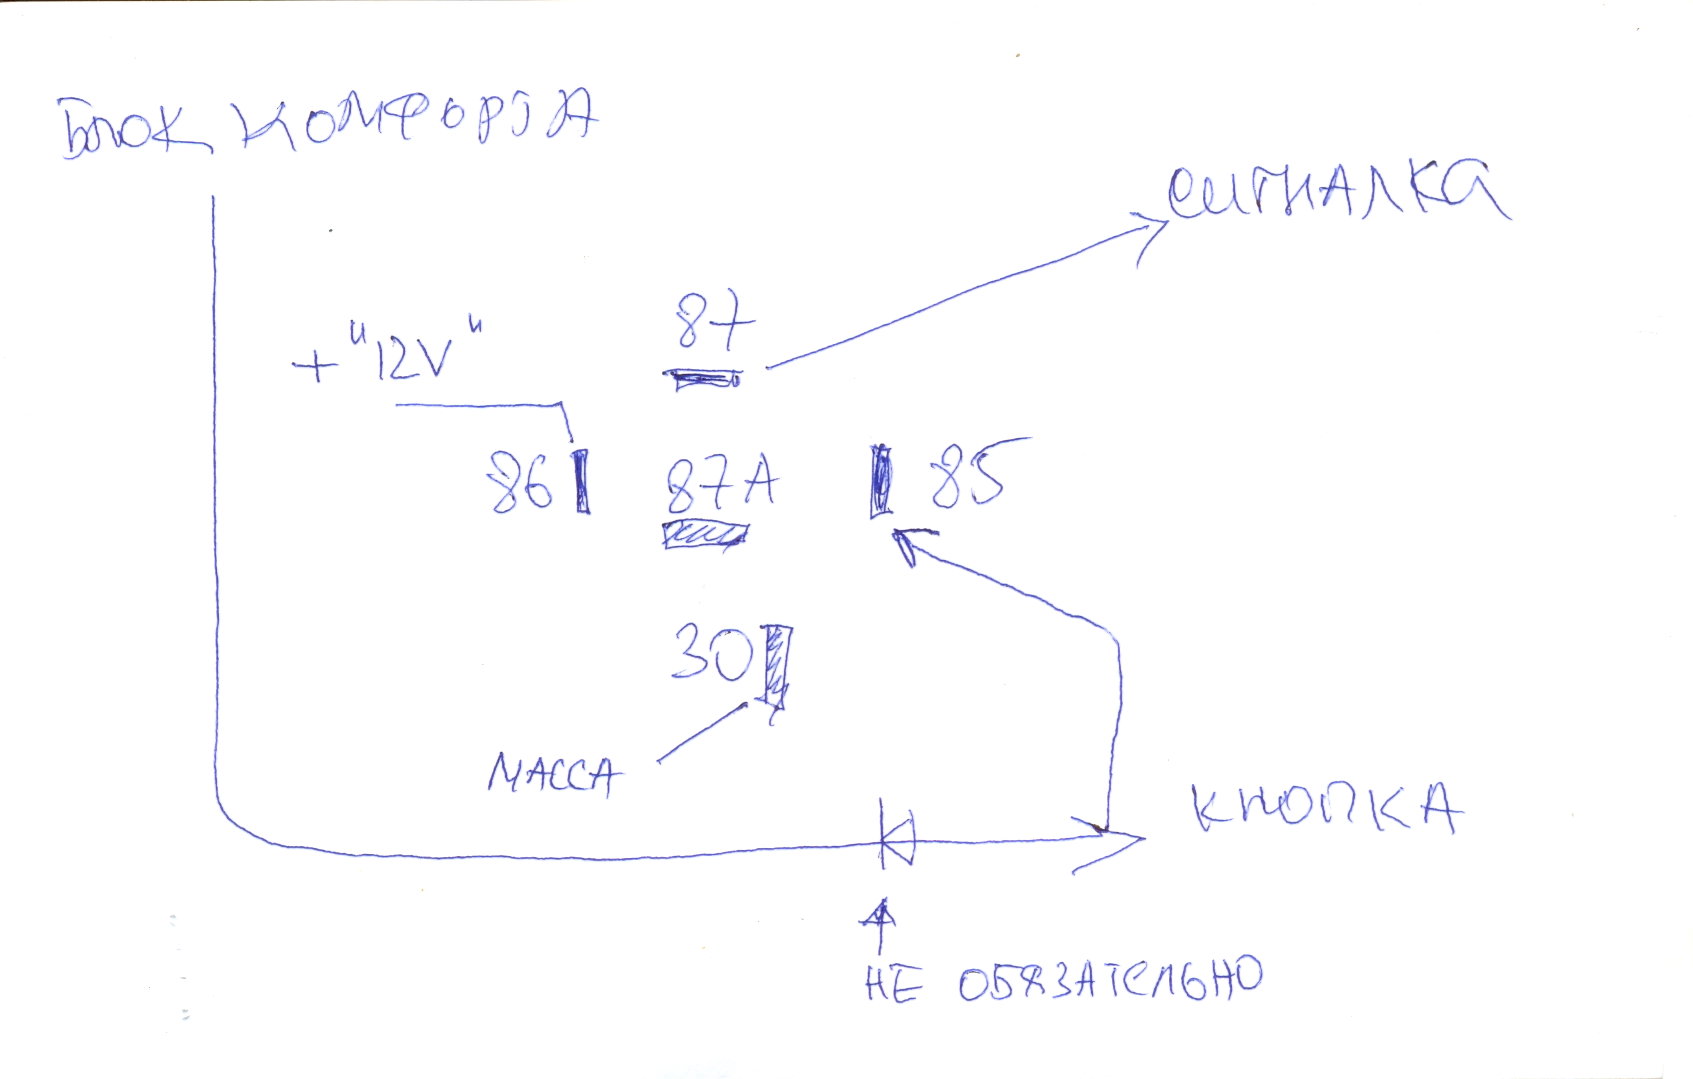 БЛОК КОМФОРТА
СИГНАЛКА
87
+ "12V"
86
87А
85
30
МАССА
КНОПКА
НЕ ОБЯЗАТЕЛЬНО